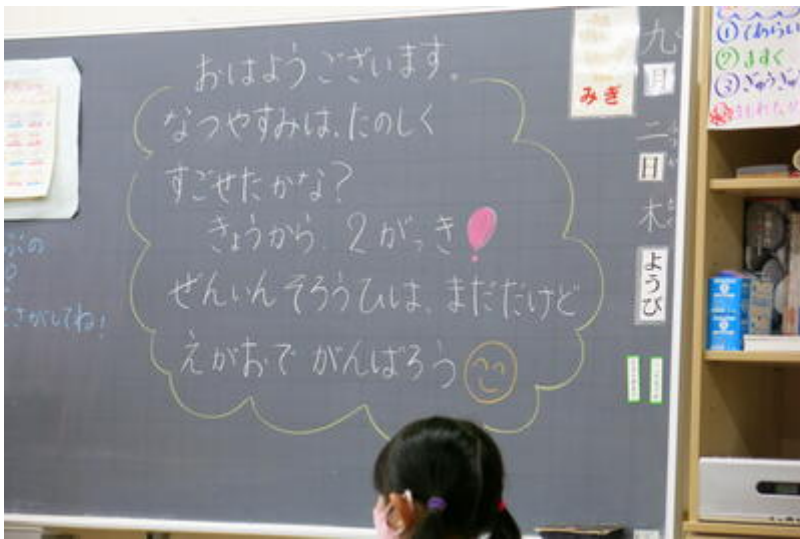 おはようございます。
なつやすみは、たのしく
すごせたかな?
きょうから、2がっき!
ぜんいんそろうひは、まだだけど
えがおで がんばろう
さがしてね!
みぎ
九
月
二
日
木
ようび
① てあらい
② ますく
③ ぎゅうぎゅ